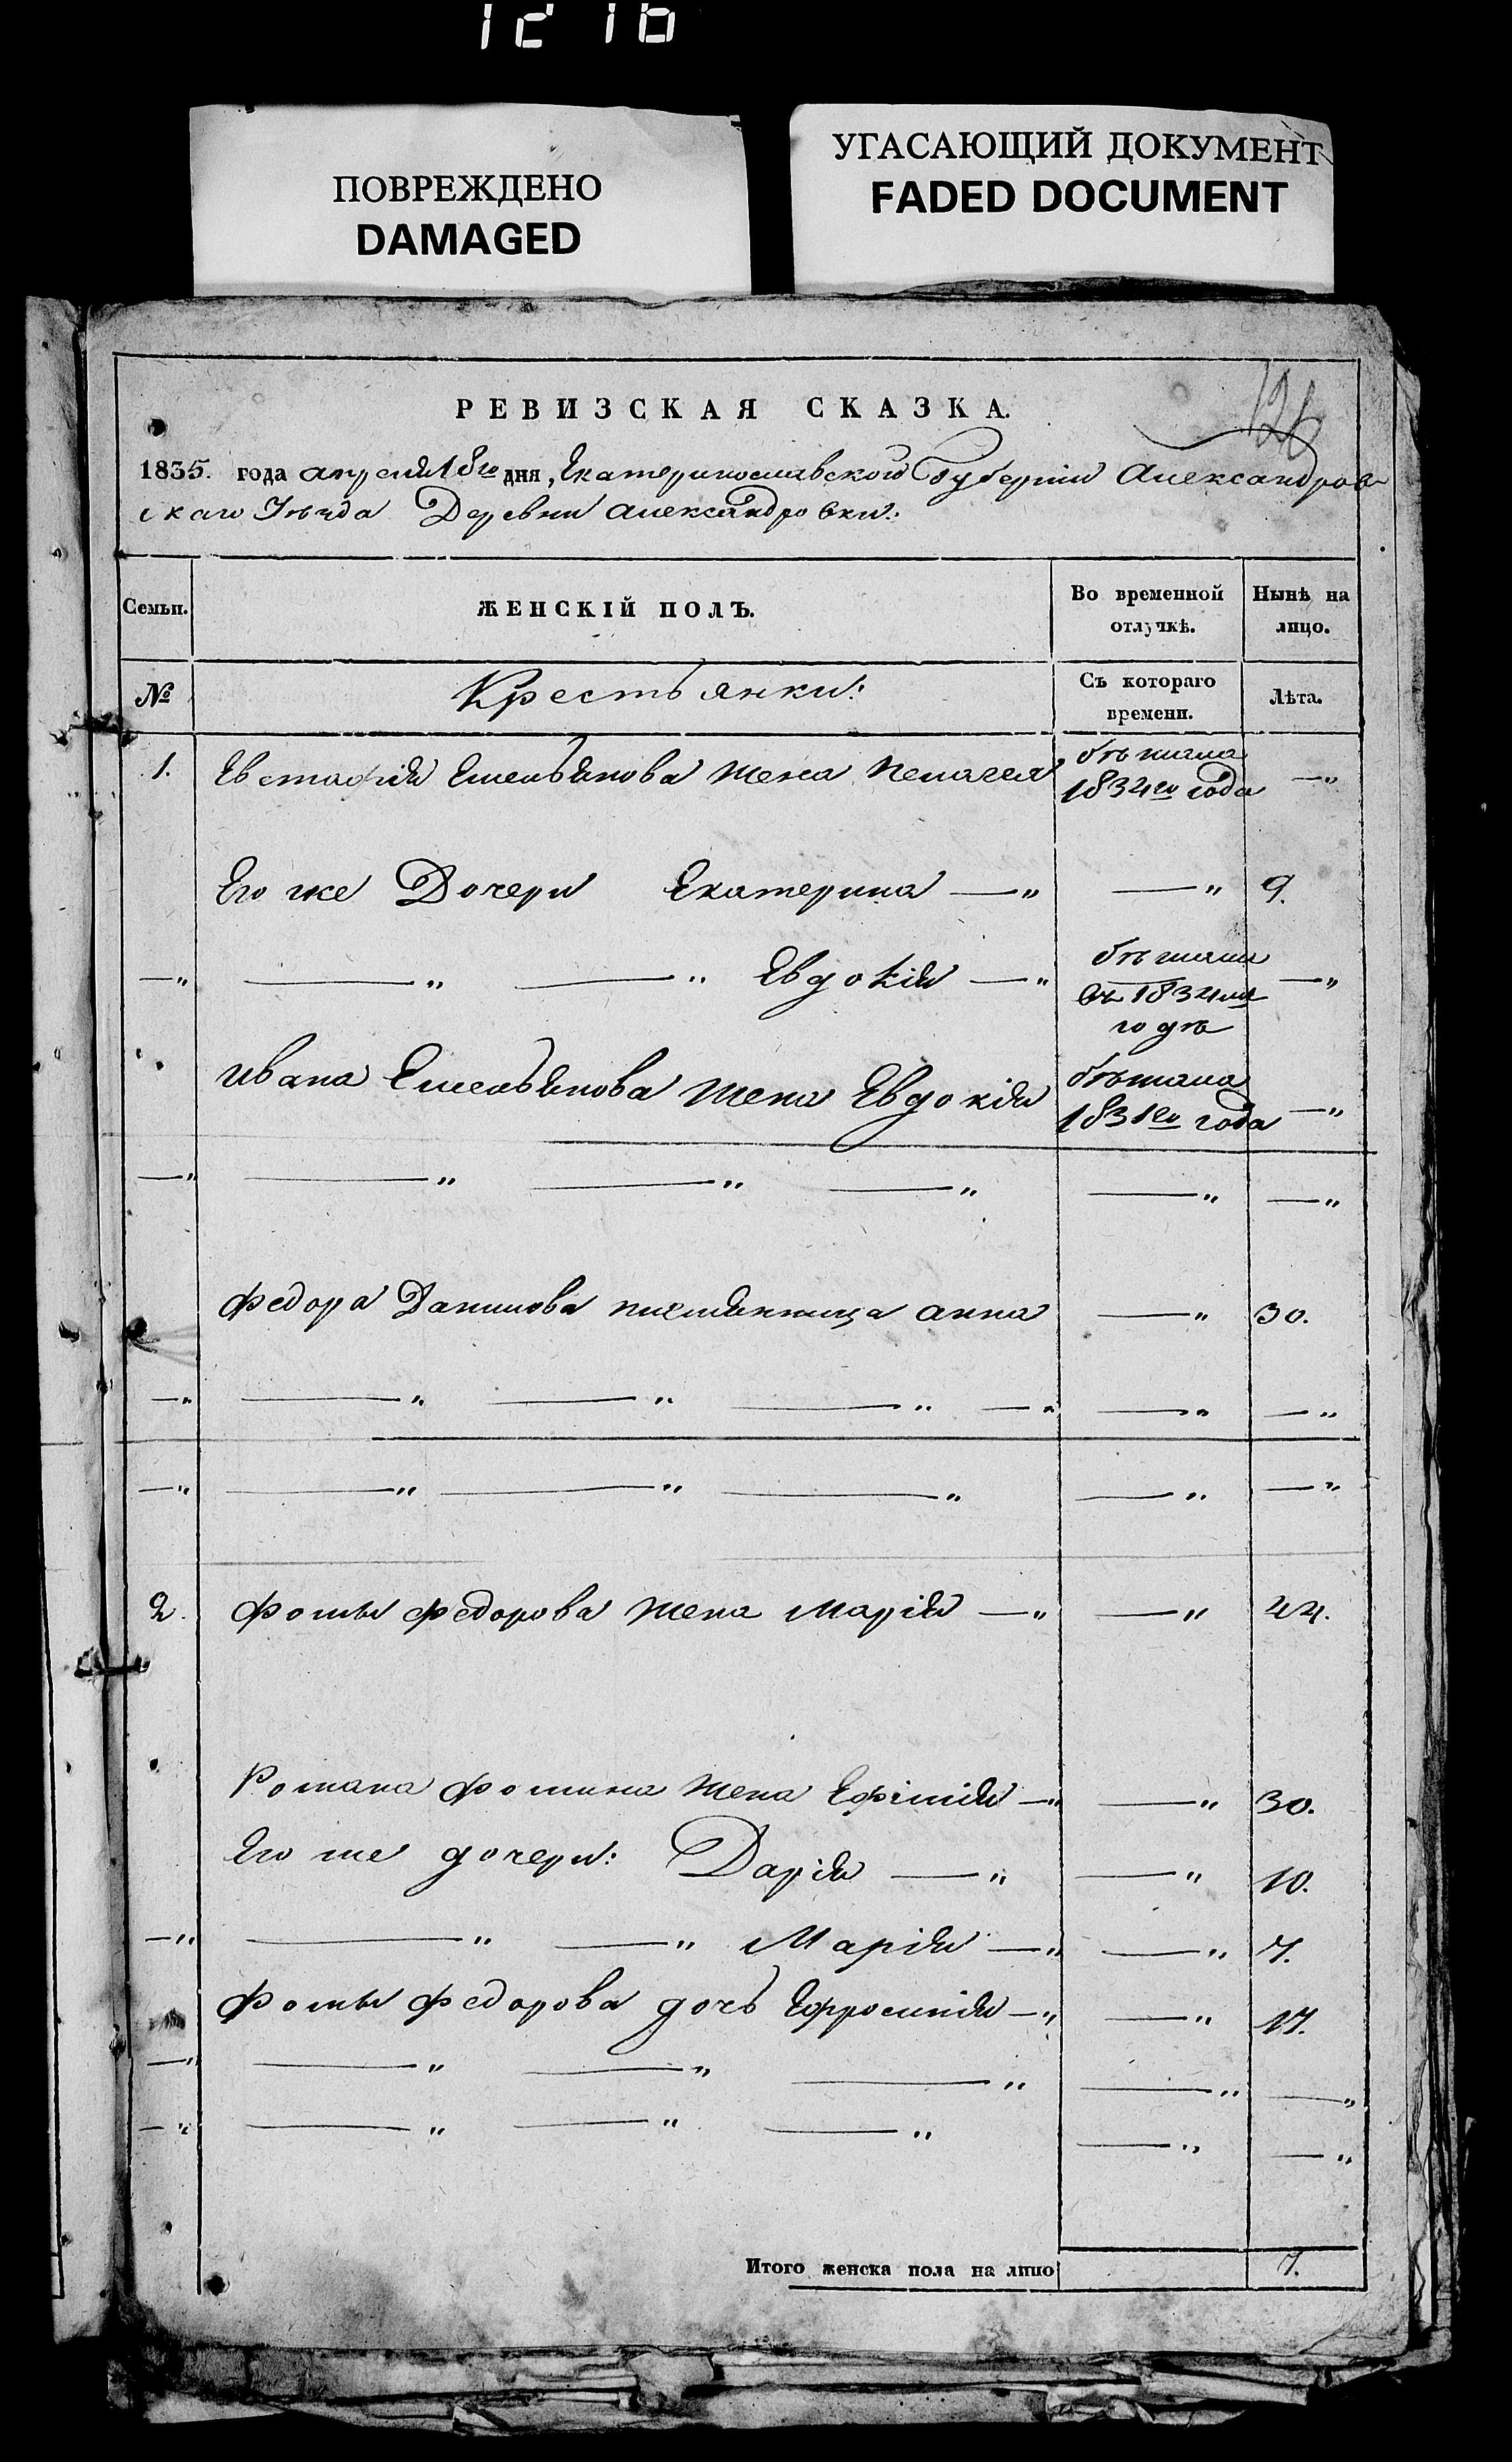 ПОВРЕЖДЕНО
DAMAGED
УГАСАЮЩИЙ ДОКУМЕНТ
FADED DOCUMENT
126
РЕВИЗСКАЯ СКАЗКА.
1835. года апреля 18го дня, Екатеринославской Губернии Александров
скаго Уѣзда Деревни Александровки:
Семьи. ЖЕНСКІЙ ПОЛЪ. Во временной отлучкѣ. Нынѣ на лицо.
№ Крестьянки: Съ котораго времени. Лѣта.
1. Евстафія Емельянова жена Пелагея бѣжала 1834го года —"
Его же Дочери Екатерина —" —" 9.
—" —" —" Евдокія —" бѣжали въ 1834м годѣ —"
Ивана Емельянова жена Евдокія бѣжала 1831го года —"
—" —" —" —" —" —"
Федора Данилова племянница Анна —" 30.
—" —" —" —" —" —" —"
—" —" —" —" —" —"
2. Фомы Федорова жена Марія —" —" 44.
Романа Фомина жена Ефимія —" —" 30.
Его же дочери: Дарія —" —" 10.
—" —" —" Марія —" —" 7.
Фомы Федорова дочь Ефросинія —" —" 17.
—" —" —" —" —" —"
—" —" —" —" —" —"
Итого женска пола на лицо 7.